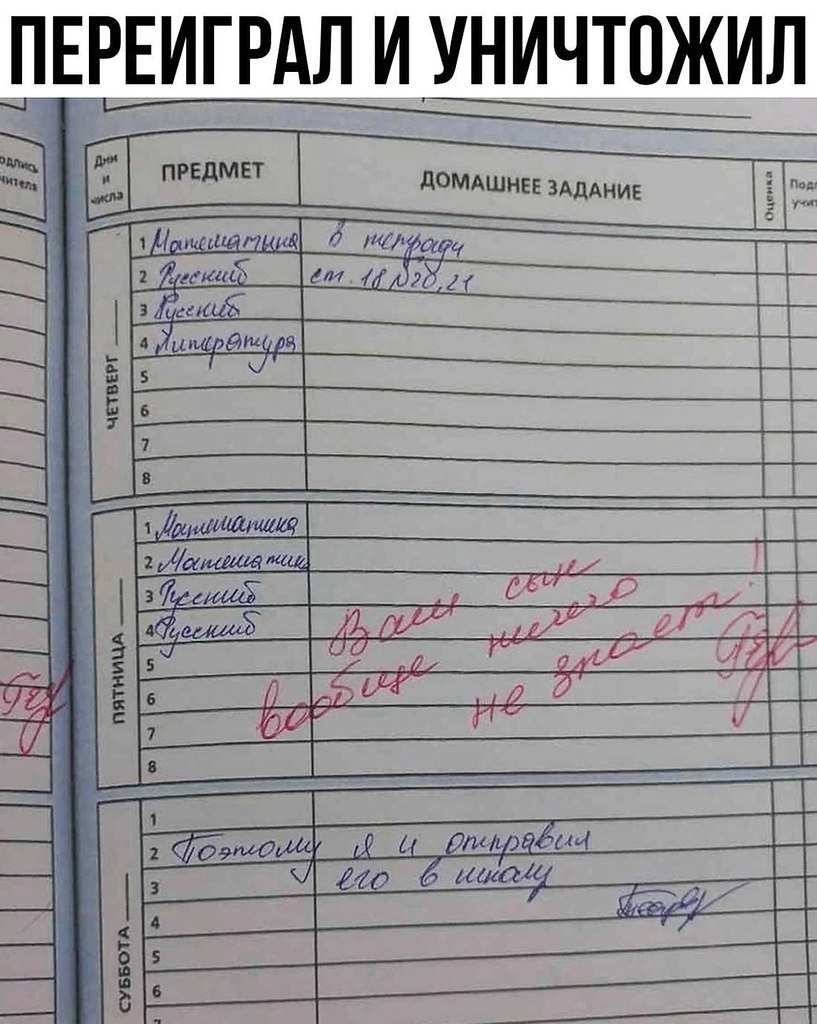 ПЕРЕИГРАЛ И УНИЧТОЖИЛ
одпись
чителя
Дни и числа ПРЕДМЕТ ДОМАШНЕЕ ЗАДАНИЕ Оценка Подп
учит
ЧЕТВЕРГ
1 Математика в тетради
2 Русский ст. 18 №20,21
3 Русский
4 Литература
5
6
7
8
ПЯТНИЦА
1 Математика
2 Математика
3 Русский
4 Русский
5
6
7
8
Ваш сын
вообще ничего
не знает!
СУББОТА
1
2 Поэтому я и отправил
3 его в школу
4
5
6
7